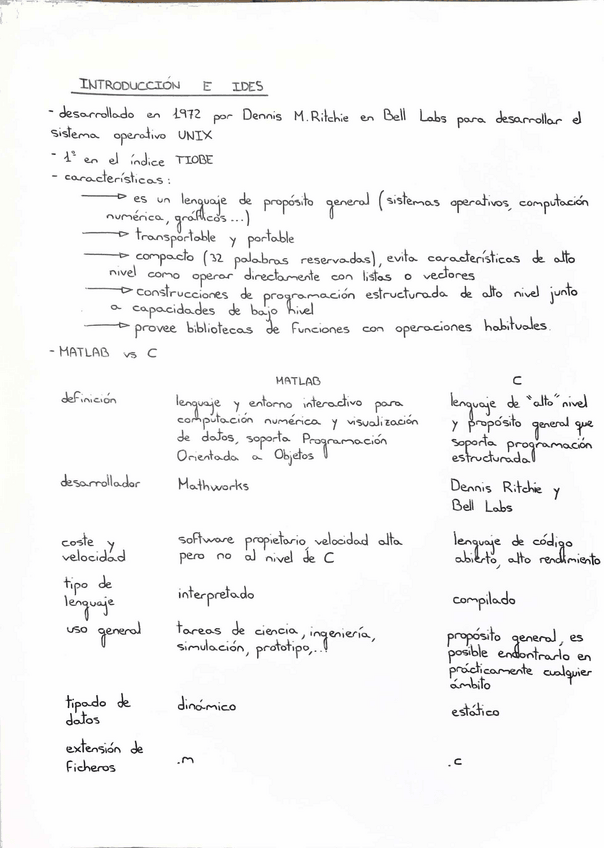 INTRODUCCIÓN E IDES
- desarrollado en 1972 por Dennis M. Ritchie en Bell Labs para desarrollar el
sistema operativo UNIX
- 1º en el índice TIOBE
- características:
→ es un lenguaje de propósito general (sistemas operativos, computación
numérica, gráficos...)
→ transportable y portable
→ compacto (32 palabras reservadas), evita características de alto
nivel como operar directamente con listas o vectores
→ construcciones de programación estructurada de alto nivel junto
a capacidades de bajo nivel
→ provee bibliotecas de funciones con operaciones habituales.
- MATLAB vs C
MATLAB C
definición
lenguaje y entorno interactivo para
computación numérica y visualización
de datos, soporta Programación
Orientada a Objetos
lenguaje de "alto" nivel
y propósito general que
soporta programación
estructurada
desarrollador
Mathworks
Dennis Ritchie y
Bell Labs
coste y
velocidad
software propietario, velocidad alta
pero no al nivel de C
lenguaje de código
abierto, alto rendimiento
tipo de
lenguaje
interpretado
compilado
uso general
tareas de ciencia, ingeniería,
simulación, prototipo,...
propósito general, es
posible encontrarlo en
prácticamente cualquier
ámbito
tipado de
datos
dinámico
estático
extensión de
ficheros
.m
.c